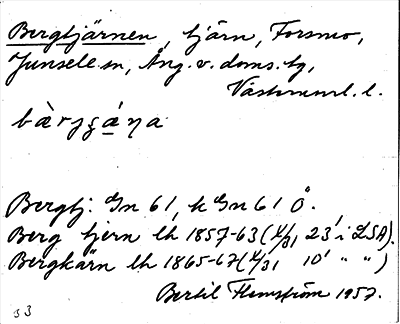 Bergtjärnen, tjärn, Forsmo,
Junsele sn, Ång. v. doms. tg,
Västernorrl. l.
Bergtj. Gn 61, k Gn 61 Ö.
Berg tjern lh 1857-63 (4/31 23' i LSA).
Bergkärn lh 1865-67 (4/31 10' " ")
Bertil Flemström 1957.
33